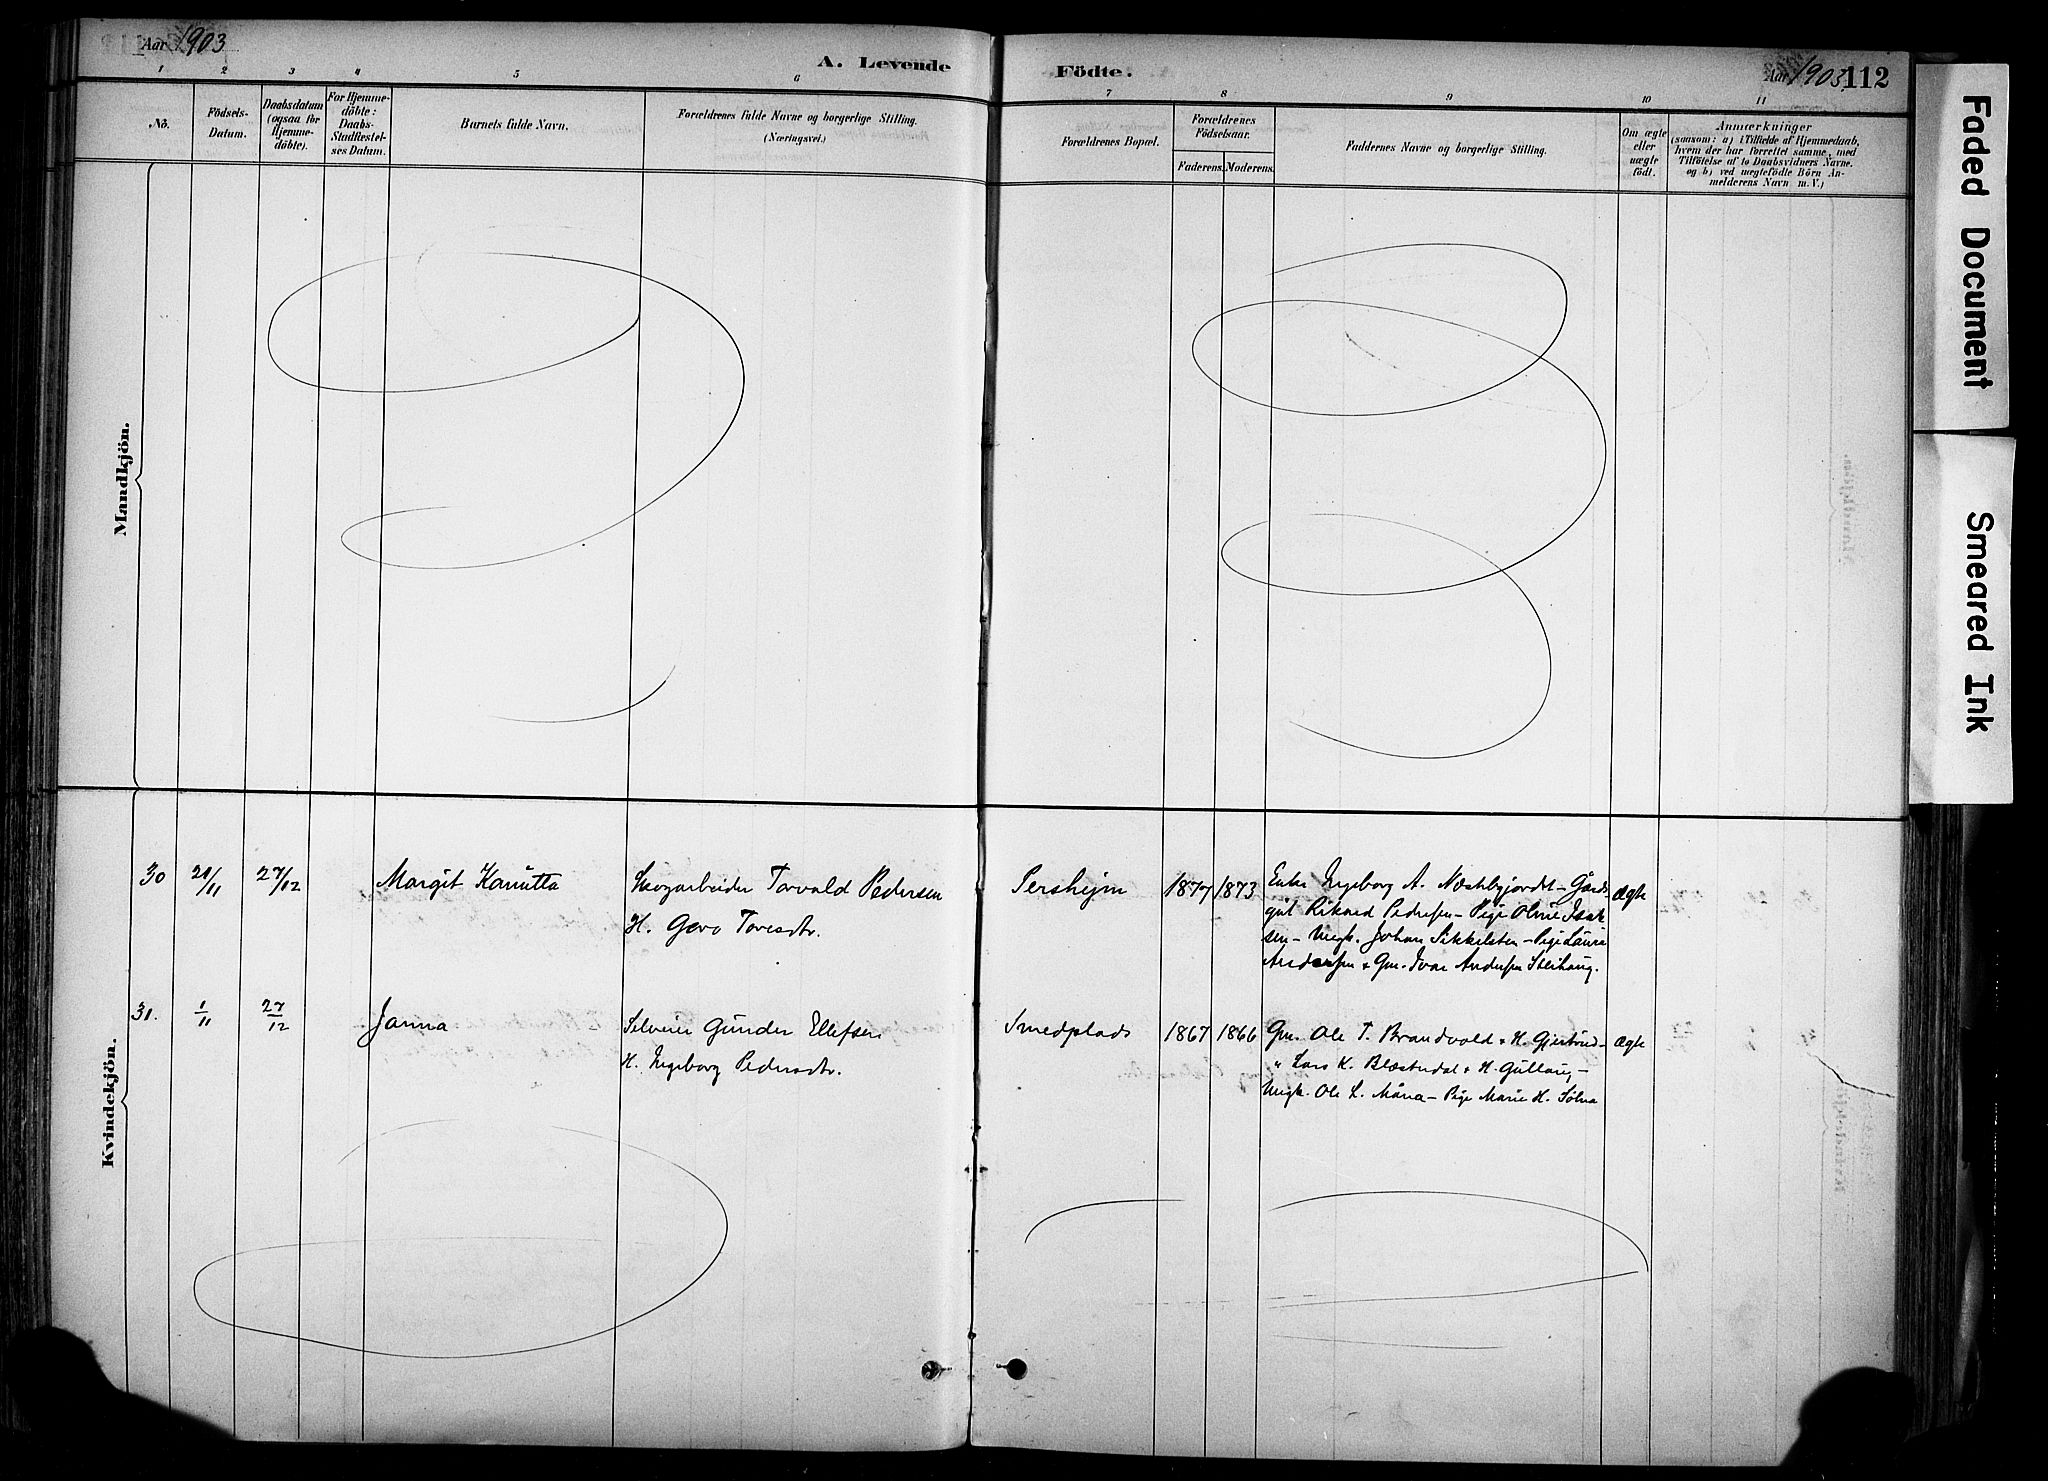 Aar 1903
A. Levende Födte.
Aar 1903.
112
1 2 3 4 5 6 7 8 9 10 11
No.
Födsels-
Datum.
Daabsdatum
(ogsaa for
Hjemme-
döbte).
For Hjemme-
döbte:
Daabs-
Stadfæstel-
ses Datum.
Barnets fulde Navn.
Forældrenes fulde Navne og borgerlige Stilling.
(Næringsvei.)
Forældrenes Bopæl.
Forældrenes
Födselsaar.
Faderens. Moderens.
Faddernes Navne og borgerlige Stilling.
Om ægte
eller
uægte
födt.
Anmærkninger
(saasom: a) i Tilfælde af Hjemmedaab,
hvem der har forrettet samme, med
Tilföielse af to Daabsvidners Navne,
og b) ved uægtefödte Börn An-
melderens Navn m. V.)
Mandkjön.
Kvindekjön.
30 21/11 27/12 Margit Kanutta Skogarbeider Torvald Pedersen Pershejm 1877 1873 Enke Ingeborg A. Næstebyjordet - Gaard- ægte
H. Gero Toresdtr.
gut Rikard Pedersen - Pige Oline Isak
sen - Ungk. Johan Sikkilsten - Pige Laura
Andersen & Gm. Ivar Andersen Steihaug.
31. 1/11 27/12 Janna Selveier Gunder Ellefsen Smedplads 1867 1866 Gm. Ole T. Brandvold & H. Gjertrud - ægte
H. Ingeborg Pedersdtr.
" Lars K. Blæsterdal & H. Gullaug -
Ungk. Ole L. Måna - Pige Marie H. Sølna
Faded Document
Smeared Ink